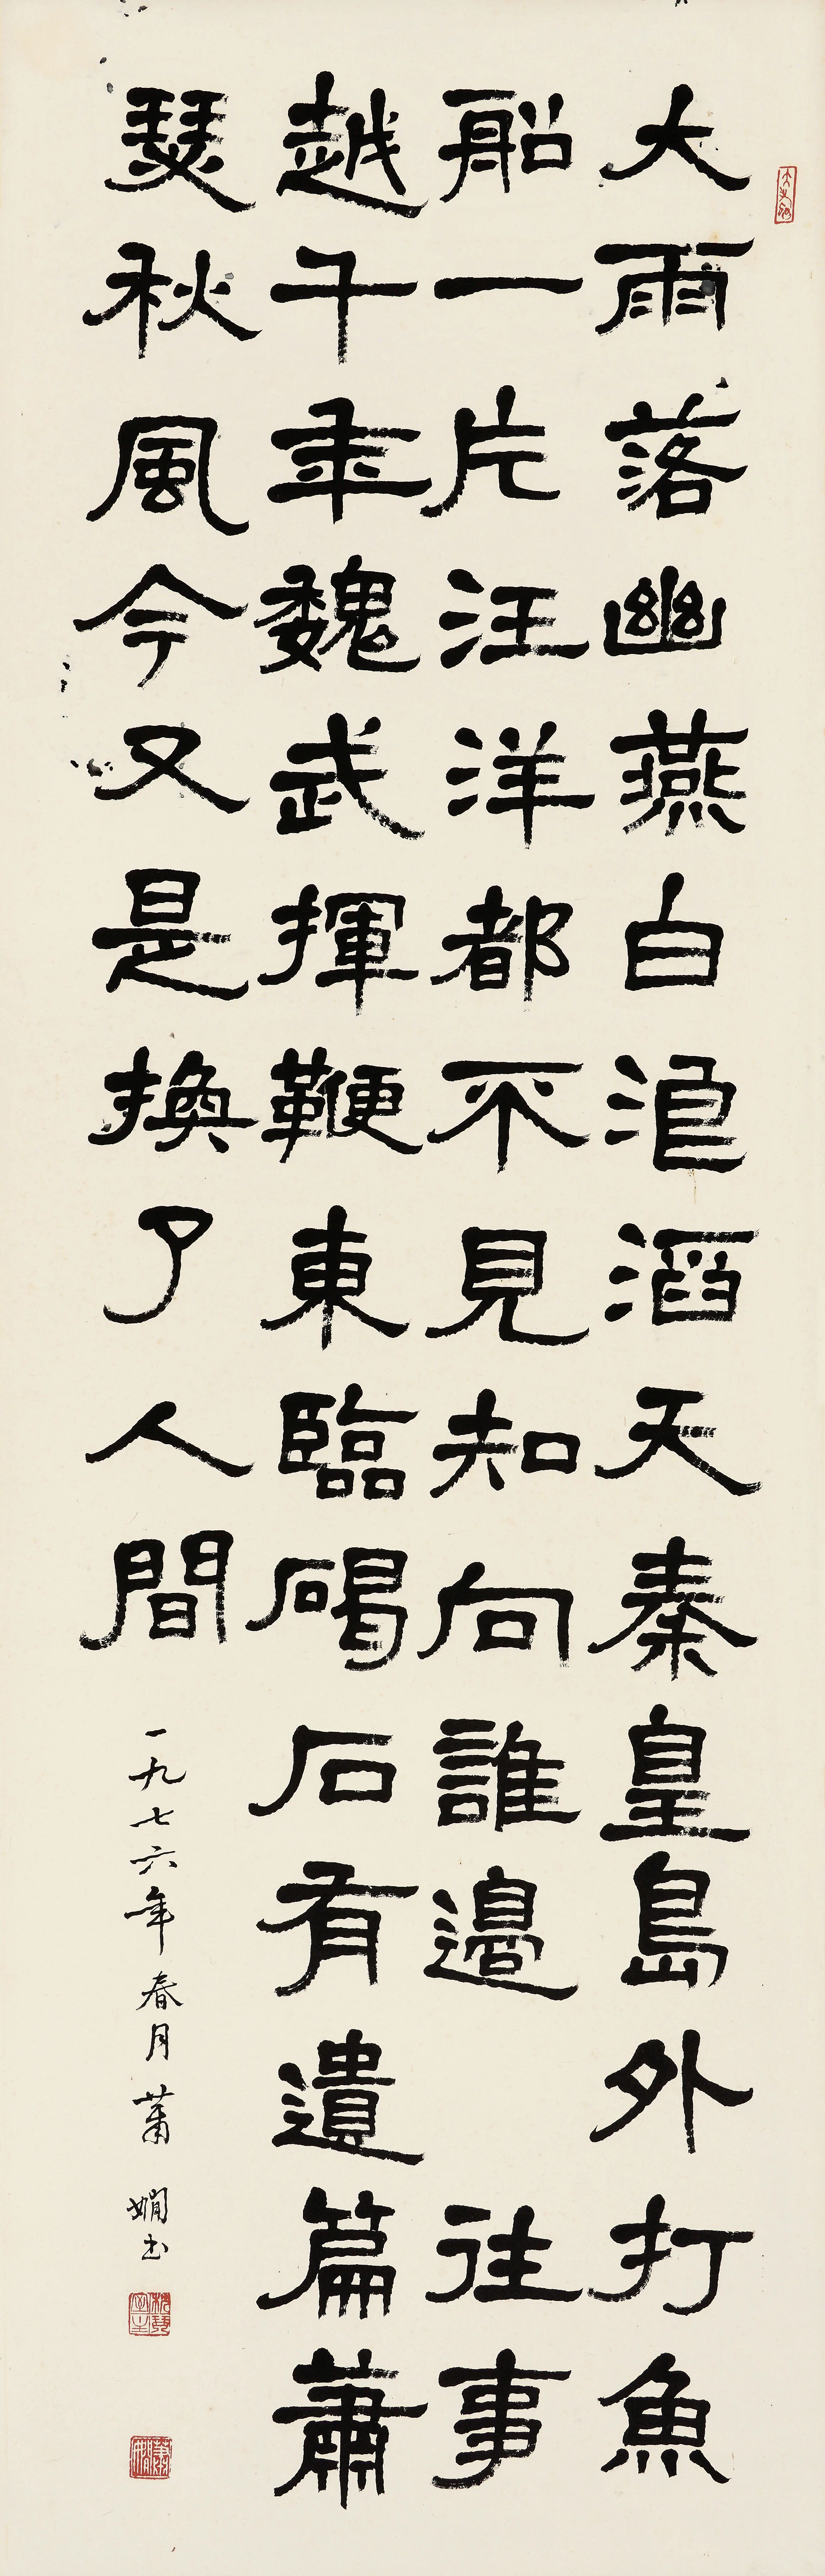 大雨落幽燕白浪滔天秦皇島外打魚
船一片汪洋都不見知向誰邊 往事
越千年魏武揮鞭東臨碣石有遺篇蕭
瑟秋風今又是換了人間
一九七六年春月蕭嫻书
蕭嫻